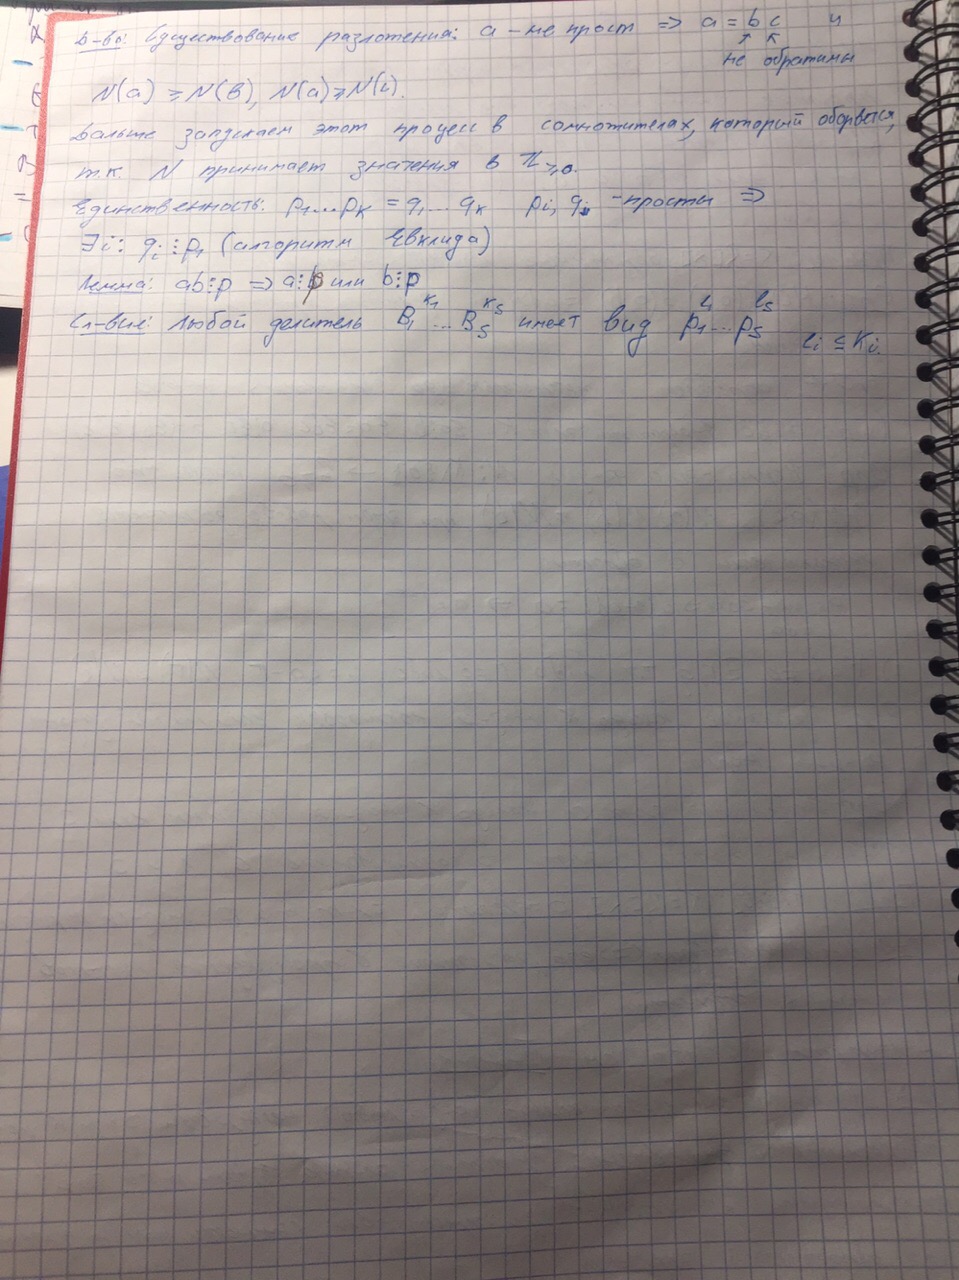 Д-во: Существование разложения: a - не прост ⇒ a = b c и
↑ ↖
не обратимы
N(a) ≥ N(b), N(a) ≥ N(c).
Дальше запускаем этот процесс в сомножителях, который оборвыся,
т.к. N принимает значения в ℤ≥0.
Единственность: p₁...pₖ = q₁...qₖ pᵢ, qᵢ - просты ⇒
∃i: qᵢ ⋮ p₁ (алгоритм Евклида)
Лемма: ab⋮p ⇒ a⋮p или b⋮p
Сл-вие: любой делитель B₁^k₁...Bₛ^kₛ имеет вид p₁^l₁...pₛ^lₛ
lᵢ ≤ kᵢ.